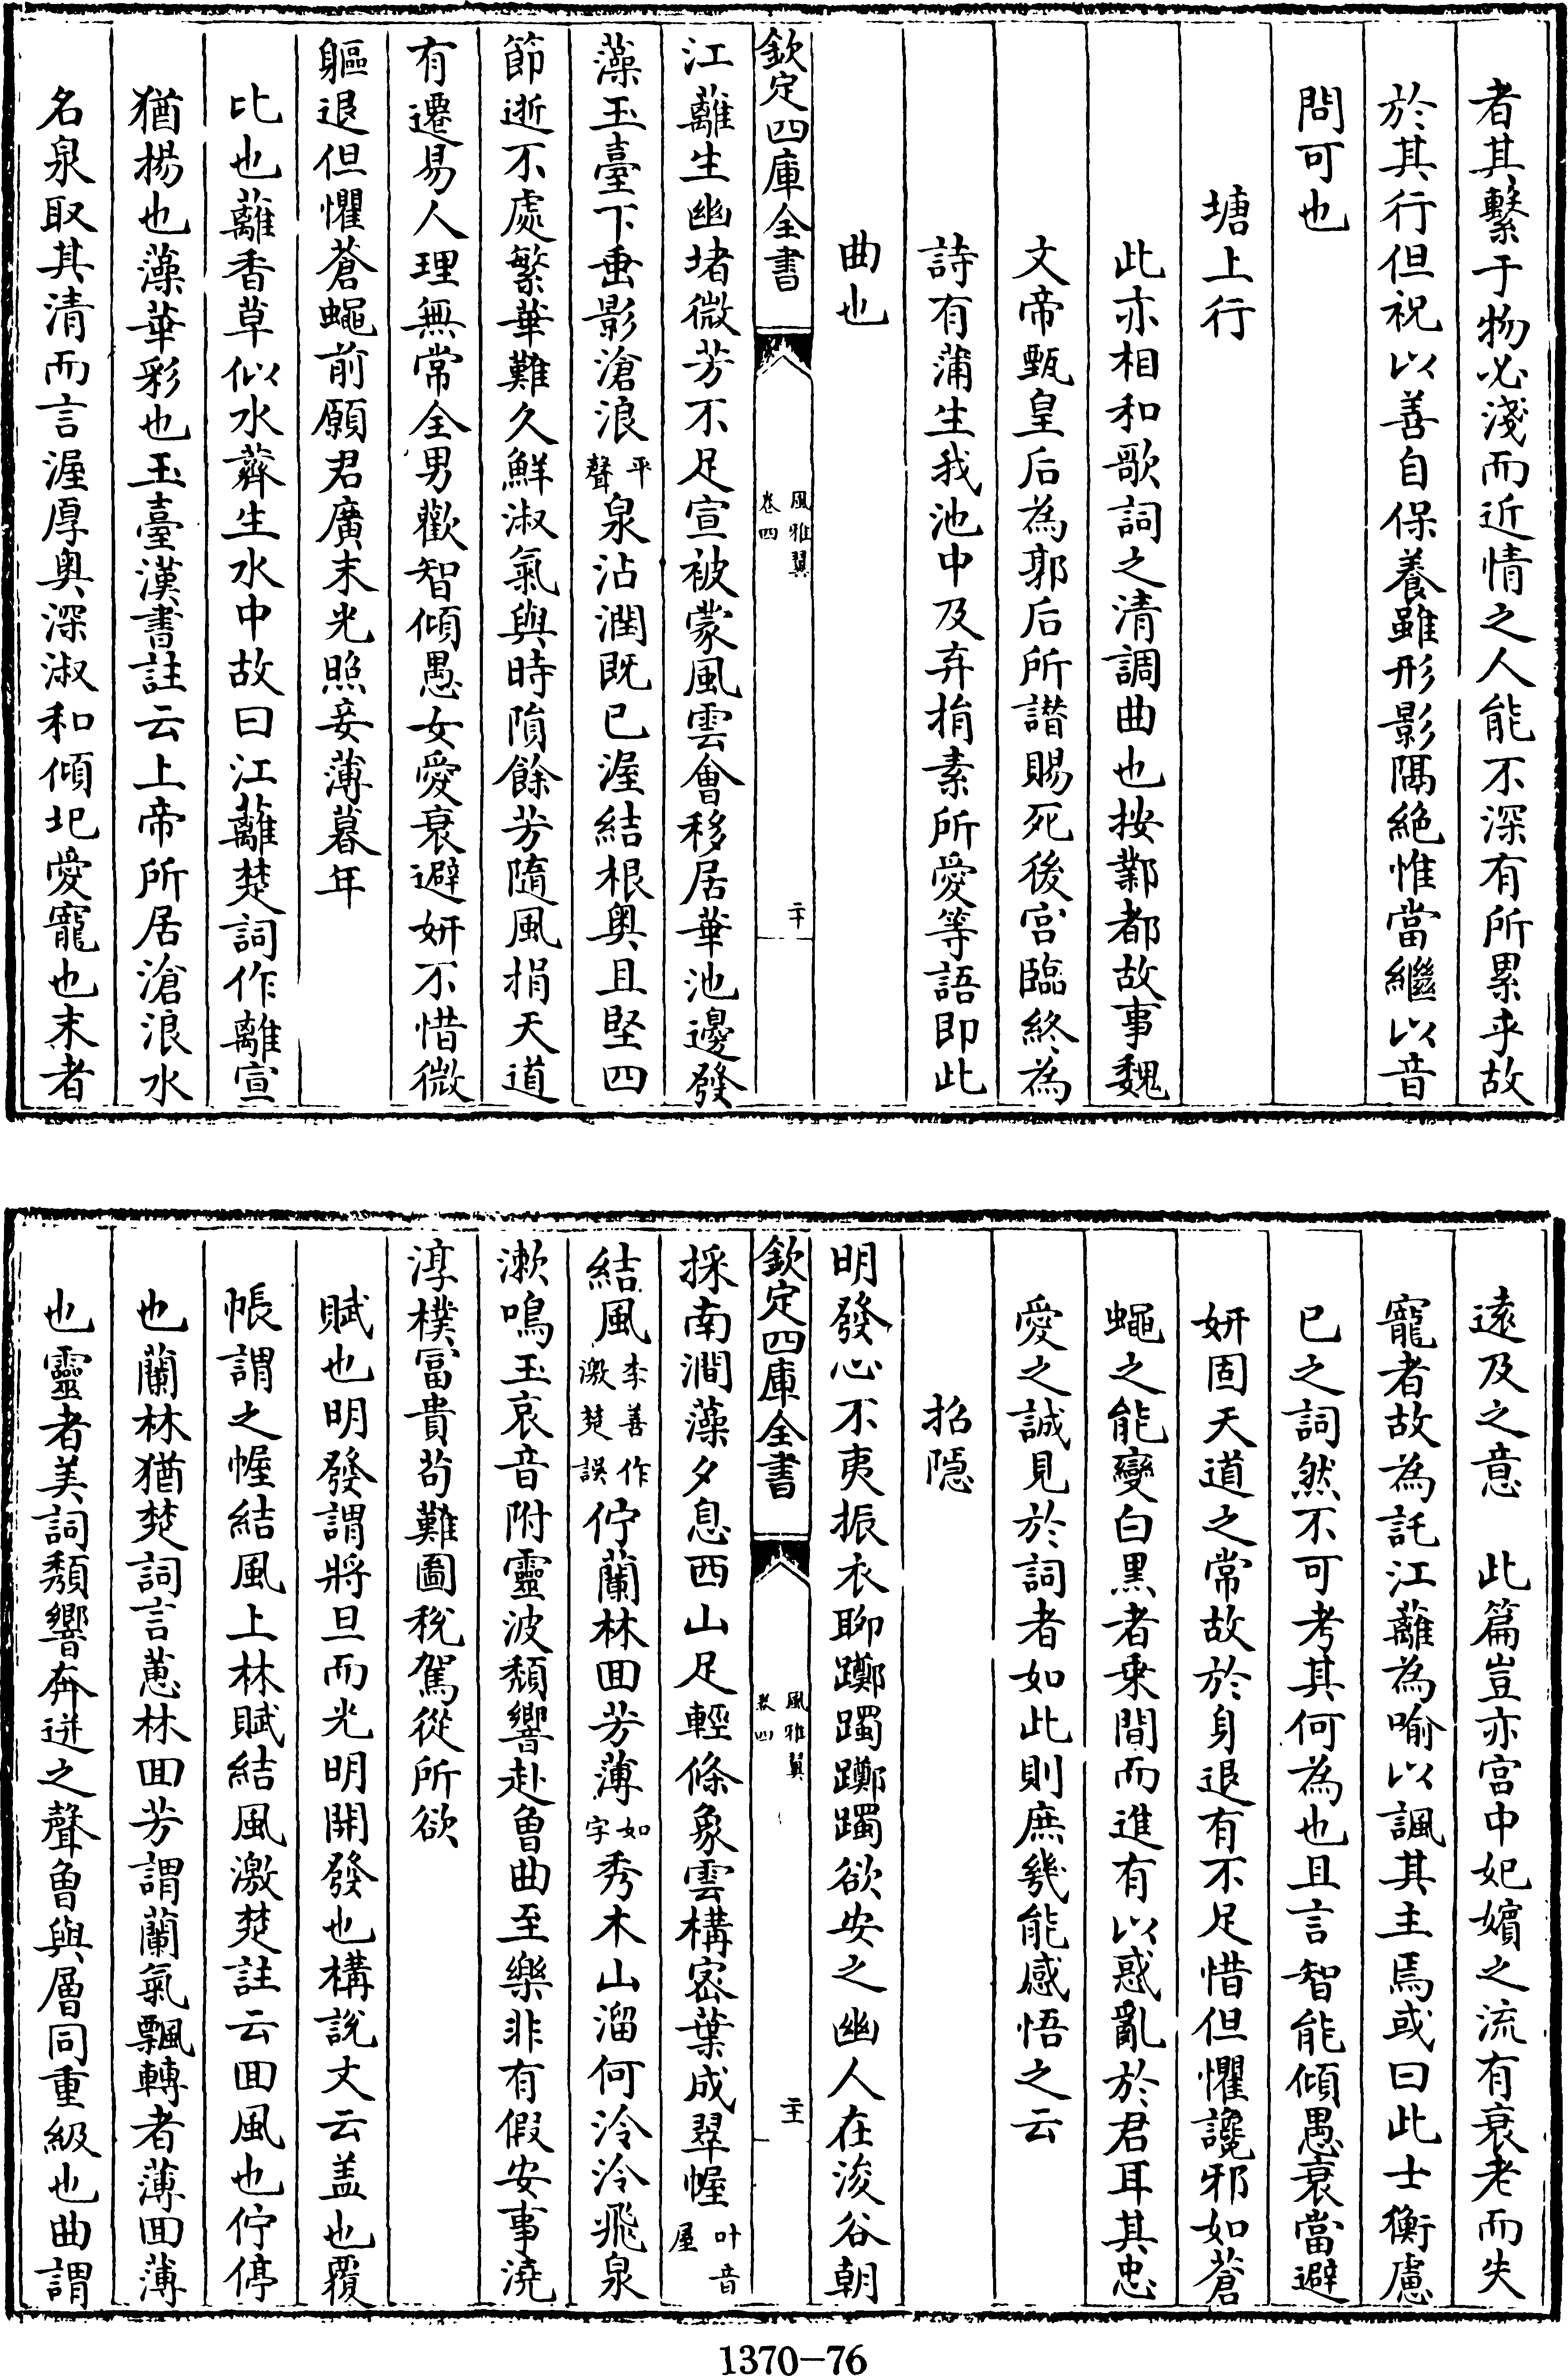 者其繫于物必淺而近情之人能不深有所累乎故
於其行但祝以善自保養雖形影隔絶惟當繼以音
問可也
塘上行
此亦相和歌詞之清調曲也按鄴都故事魏
文帝甄皇后為郭后所譖賜死後宫臨終為
詩有蒲生我池中及弃捐素所愛等語即此
曲也
欽定四庫全書
風雅翼
卷四
二十
江蘺生幽堵微芳不足宣被蒙風雲會移居華池邊發
藻玉臺下垂影滄浪平聲泉沾潤既已渥結根奥且堅四
節逝不處繁華難久鮮淑氣與時隕餘芳隨風捐天道
有遷易人理無常全男歡智傾愚女愛衰避妍不惜微
軀退但懼蒼蠅前願君廣末光照妾薄暮年
比也蘺香草似水薺生水中故曰江蘺楚詞作離宣
猶揚也藻華彩也玉臺漢書註云上帝所居滄浪水
名泉取其清而言渥厚奥深淑和傾圮愛寵也末者
遠及之意 此篇豈亦宫中妃嬪之流有衰老而失
寵者故為託江蘺為喻以諷其主焉或曰此士衡慮
已之詞然不可考其何為也且言智能傾愚衰當避
妍固天道之常故於身退有不足惜但懼讒邪如蒼
蠅之能變白黒者乗間而進有以惑亂於君耳其忠
愛之誠見於詞者如此則庶幾能感悟之云
招隱
明發心不夷振衣聊躑躅躑躅欲安之幽人在浚谷朝
欽定四庫全書
風雅翼
卷四
二十一
採南澗藻夕息西山足輕條象雲構宻葉成翠幄叶音屋
結風李善作激楚誤佇蘭林囬芳薄如字秀木山溜何泠泠飛泉
漱鳴玉哀音附靈波頽響赴曾曲至樂非有假安事澆
淳樸富貴苟難圖稅駕從所欲
賦也明發謂將旦而光明開發也構說文云盖也覆
帳謂之幄結風上林賦結風激楚註云囬風也佇停
也蘭林猶楚詞言蕙林囬芳謂蘭氣飄轉者薄囬薄
也靈者美詞頽響奔迸之聲曾與層同重級也曲謂
1370-76